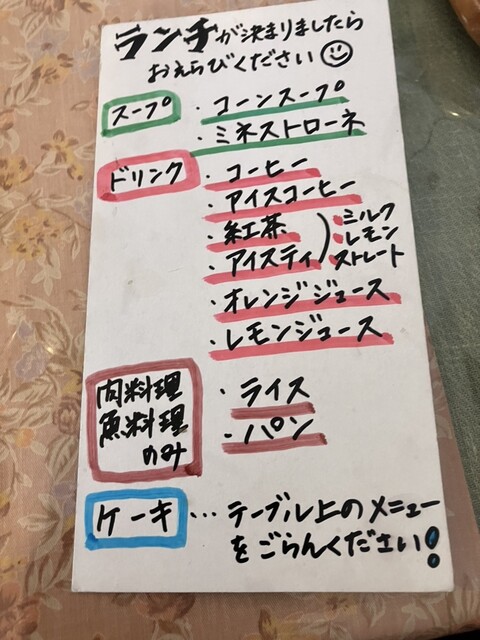 ランチが決まりましたら
おえらびください
スープ
・コーンスープ
・ミネストローネ
ドリンク
・コーヒー
・アイスコーヒー
・紅茶
・アイスティ
ミルク
レモン
ストレート
・オレンジジュース
・レモンジュース
肉料理
魚料理
のみ
・ライス
・パン
ケーキ … テーブル上のメニュー
をごらんください!